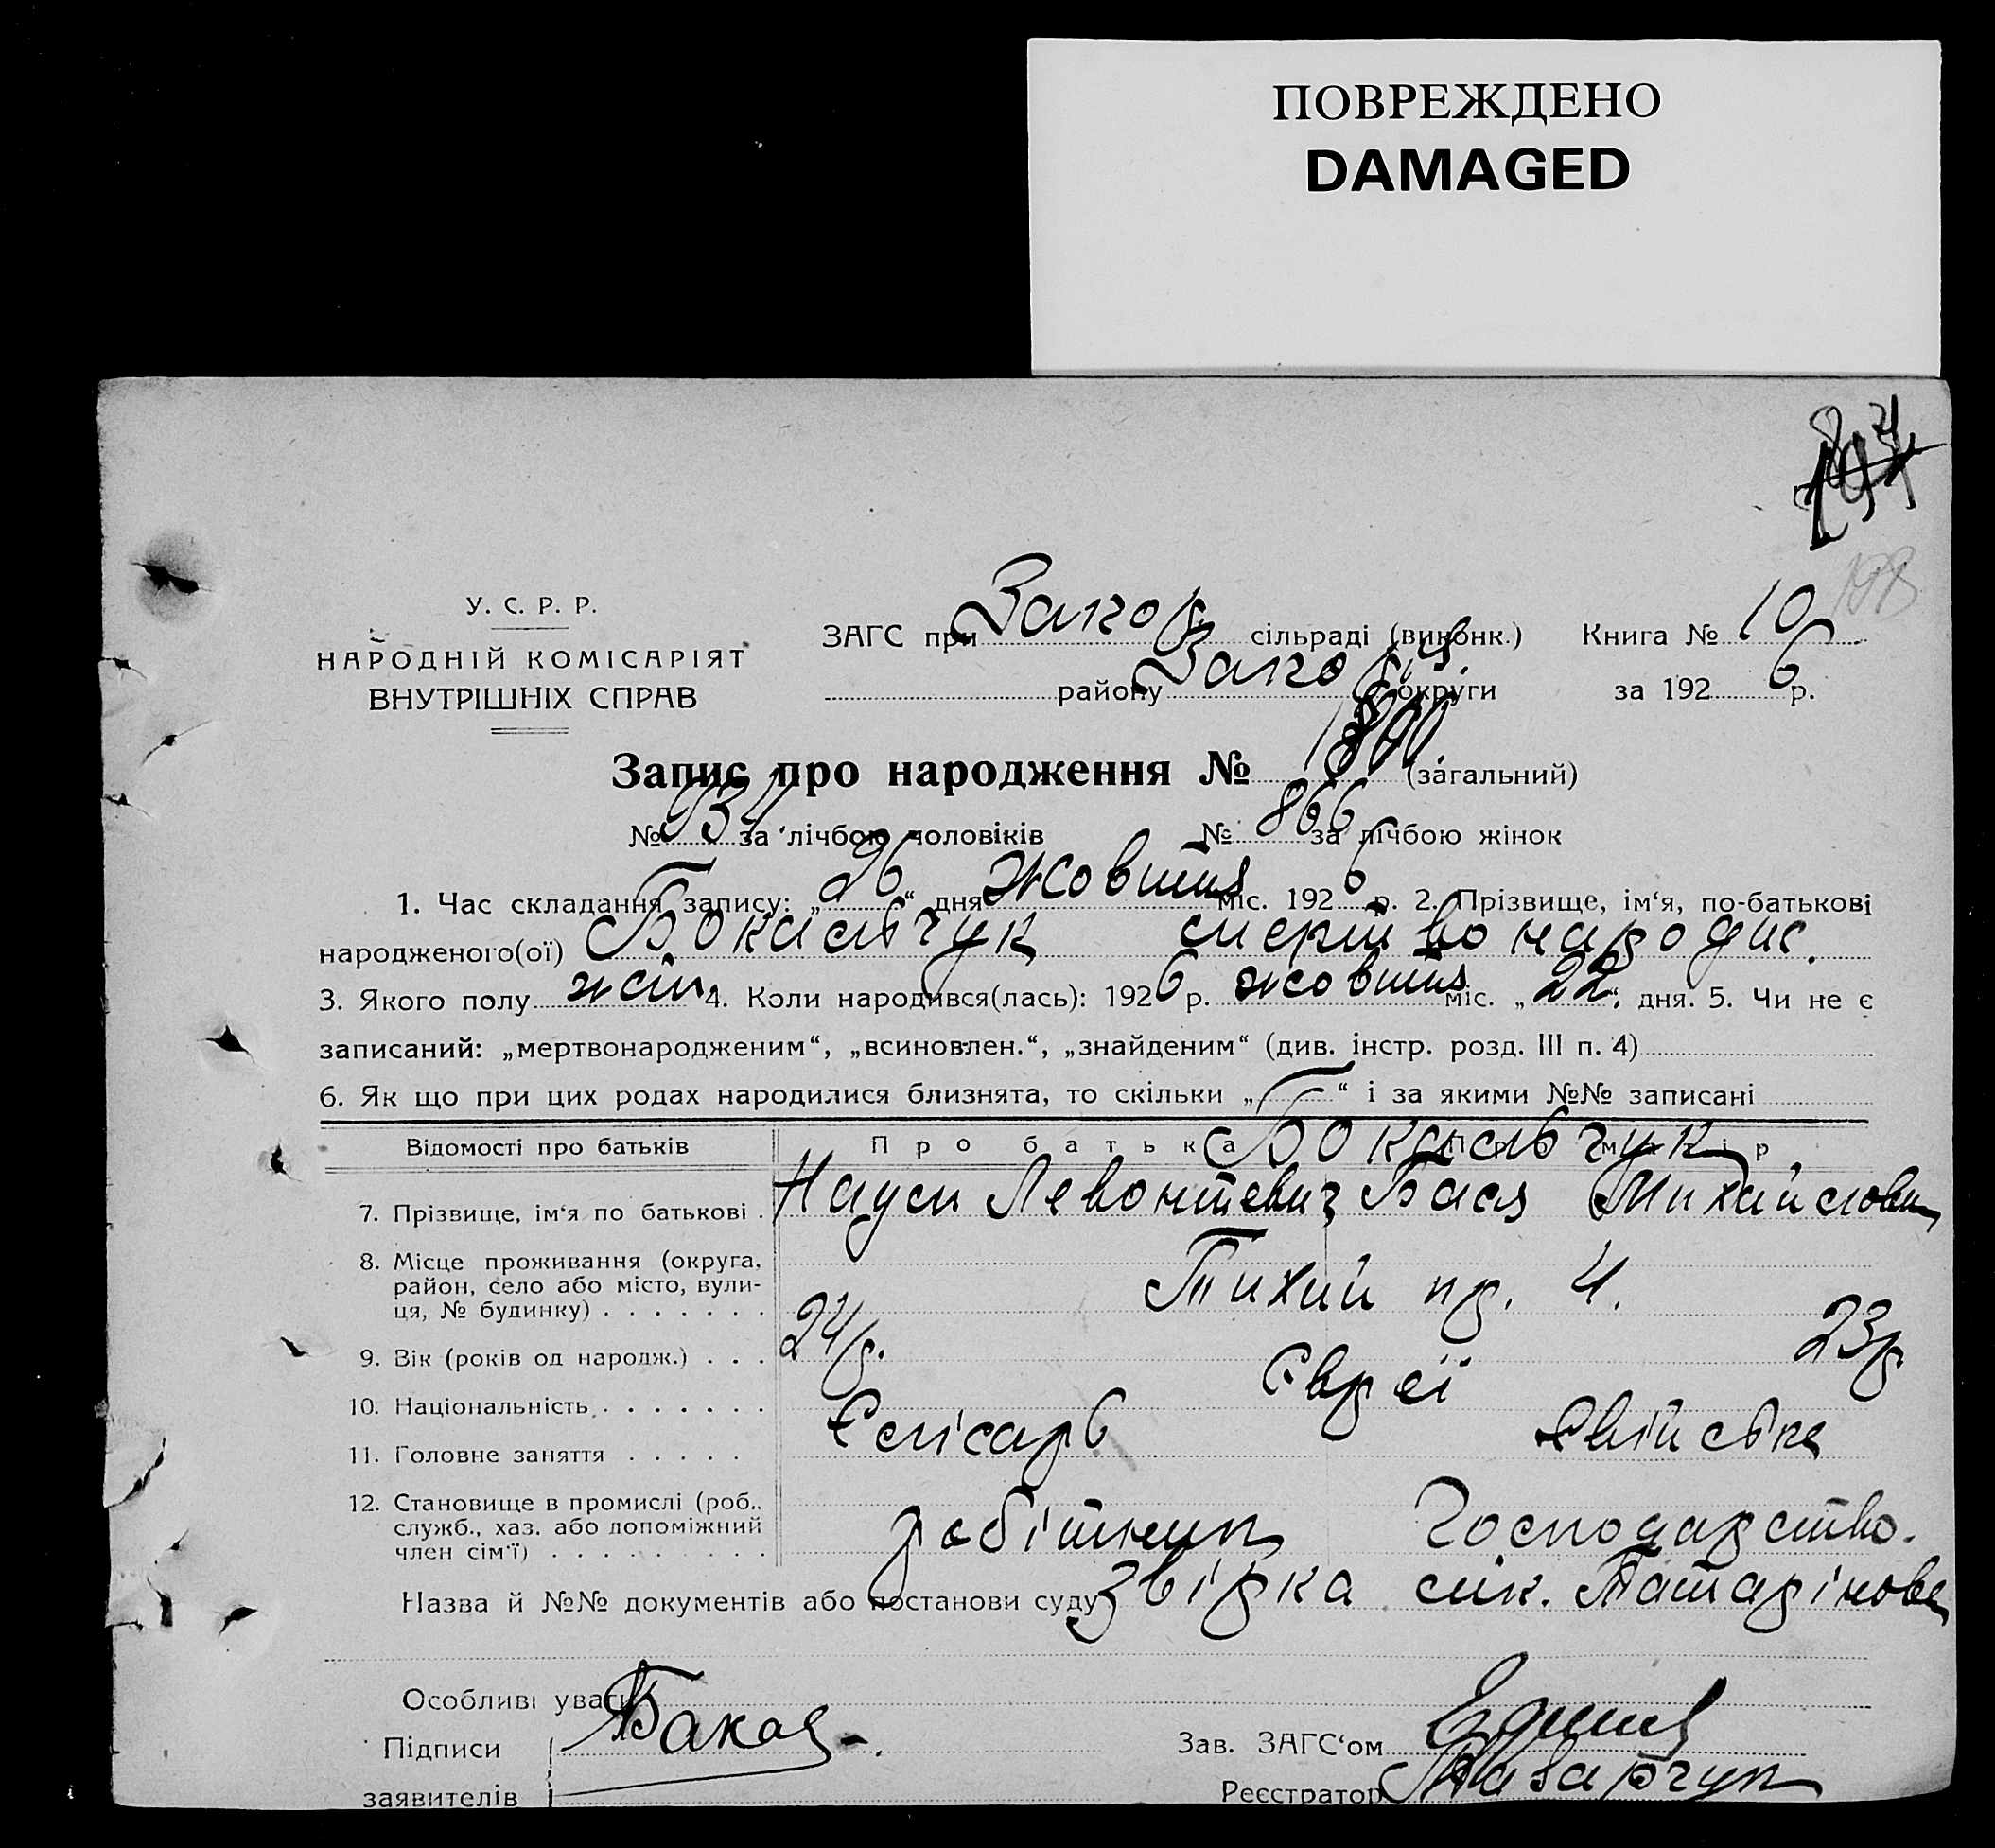 ПОВРЕЖДЕНО
DAMAGED
198
У. С. Р. Р.
НАРОДНІЙ КОМІСАРІЯТ
ВНУТРІШНІХ СПРАВ
ЗАГС при Запор. сільраді (виконк.) Книга № 10
району Запор. округи за 1926 р.
Запис про народження № (загальний)
№ 934 за лічбою чоловіків № 866 за лічбою жінок
1. Час складання запису: „26“ дня жовтня міс. 1926 р. 2. Прізвище, ім'я, по-батькові
народженого(ої) Бокальчук смертвонародис.
3. Якого полу жін 4. Коли народився(лась): 1926 р. жовтня міс. „22“ дня. 5. Чи не є
записаний: „мертвонародженим“, „всиновлен.“, „знайденим“ (див. інстр. розд. III п. 4)
6. Як що при цих родах народилися близнята, то скільки „ “ і за якими №№ записані
Відомості про батьків Про батька Про матір
Бокальчук
7. Прізвище, ім'я по батькові . Наум Левонтевич Бася Михайловн
8. Місце проживання (округа,
район, село або місто, вули-
ця, № будинку) . . . . . . . Тихий пр. 4.
9. Вік (років од народж.) . . . 24 р. 23 р
10. Національність . . . . . . . Євреї
11. Головне заняття . . . . . Слісарь Хатнє
12. Становище в промислі (роб..
служб., хаз. або допоміжний
член сім'ї) . . . . . . . . . робітник Господарство.
Назва й №№ документів або постанови суду Звірка лік. Татарінова
Особливі уваги
Підписи Бакал
заявителів
Зав. ЗАГС'ом
Реєстратор